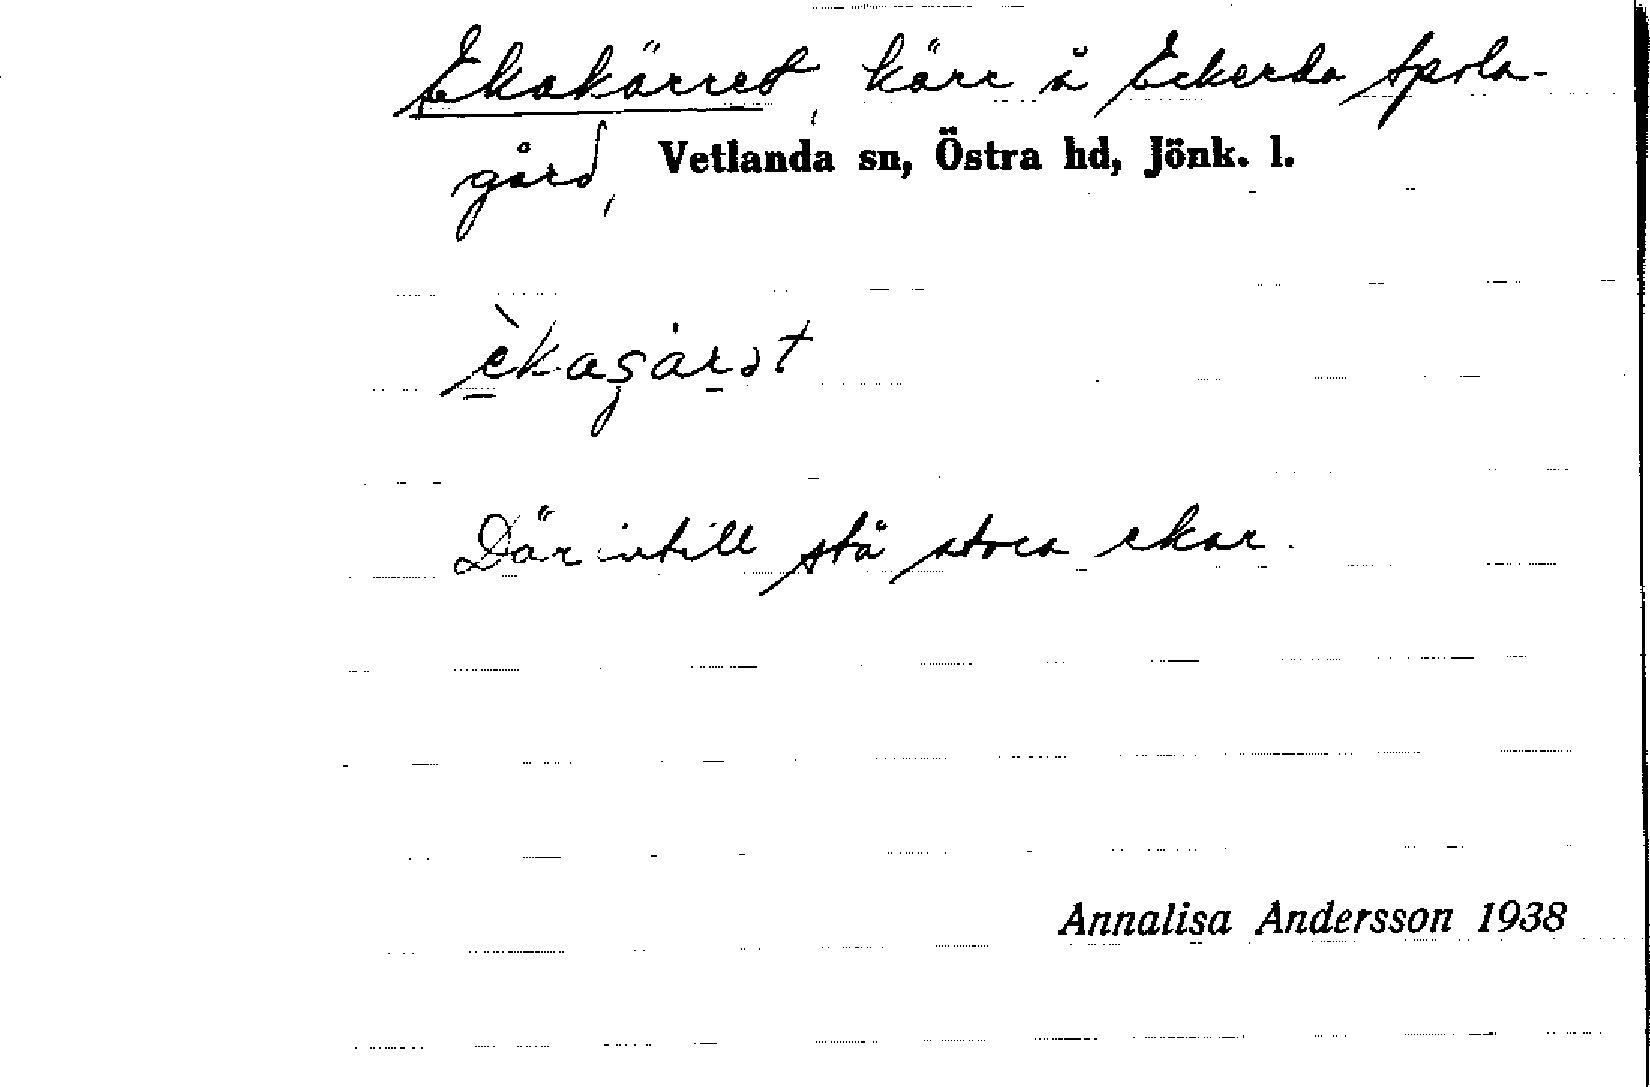 Ekakärret, kärr å Eckerda Spola-
gård, Vetlanda sn, Östra hd, Jönk. l.
Där intill stå stora ekar.
Annalisa Andersson 1938